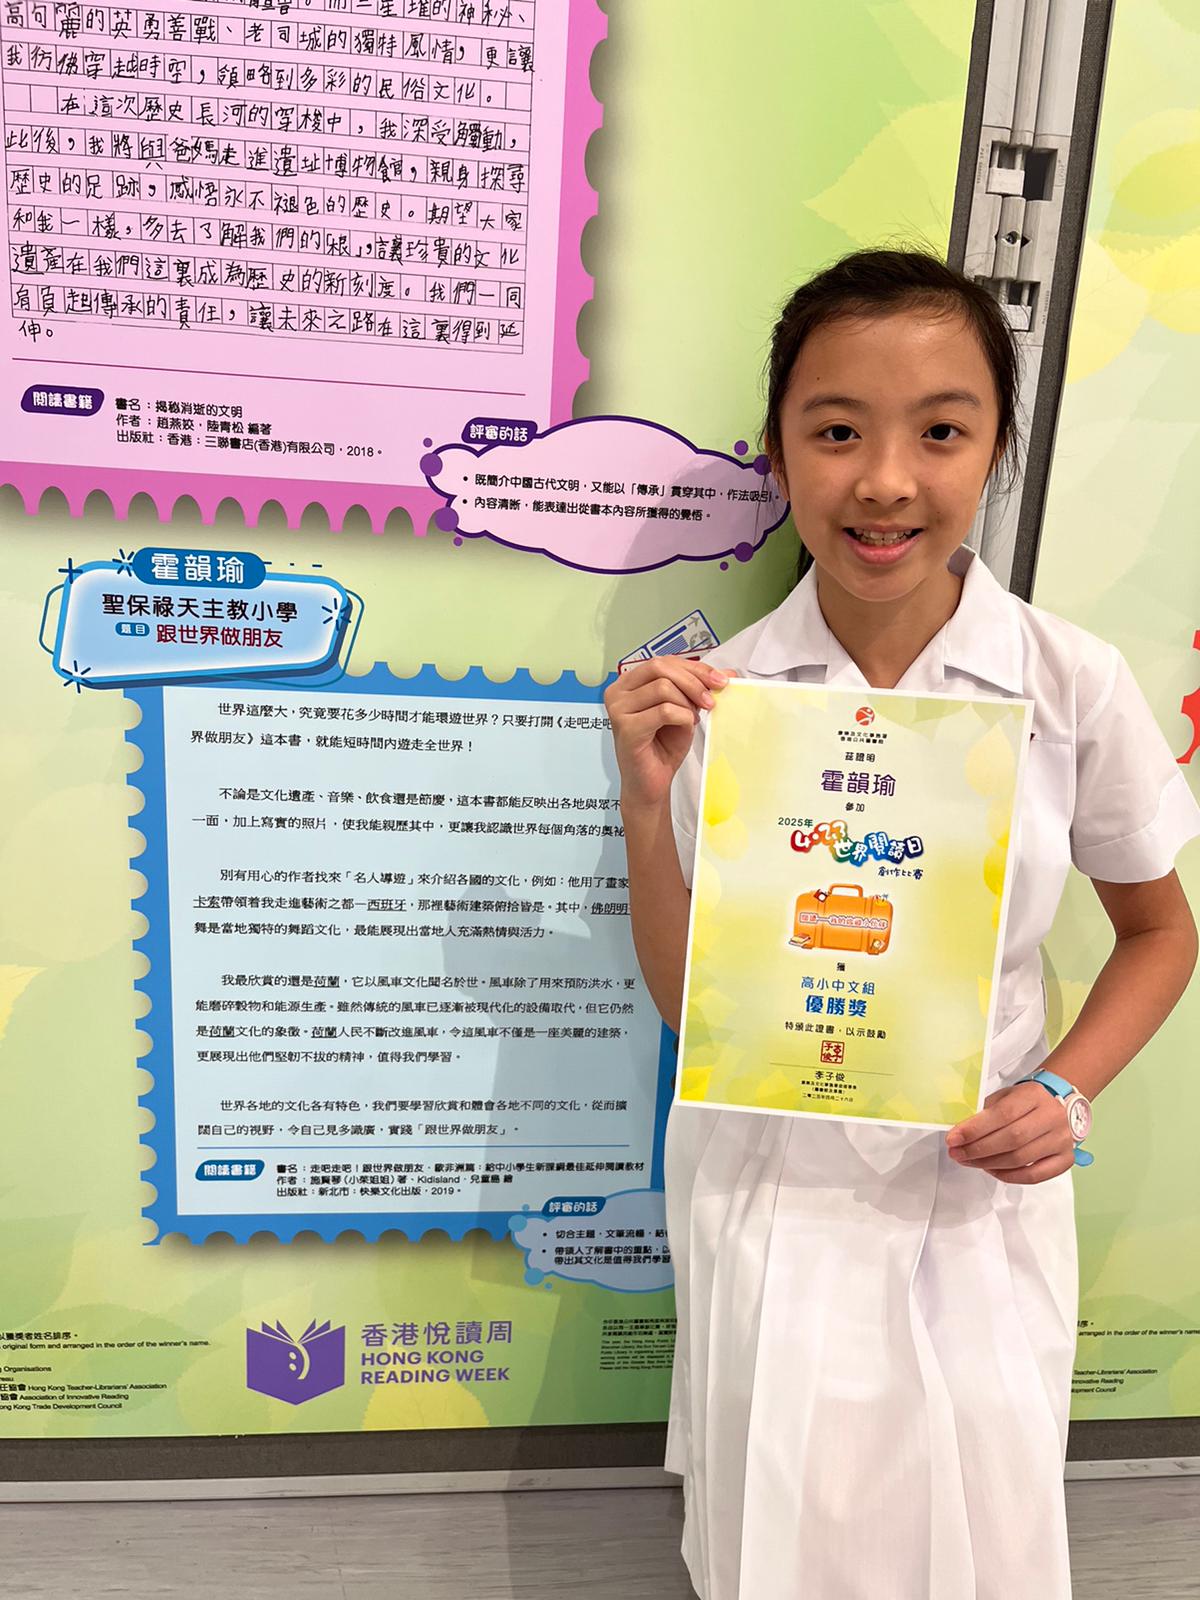 高句麗的英勇善戰、老司城的獨特風情，更讓
我彷彿穿越時空，領略到多彩的民俗文化。
在這次歷史長河的穿梭中，我深受觸動，
此後，我將與爸媽走進遺址博物館，親身探尋
歷史的足跡，感悟永不褪色的歷史。期望大家
和我一樣，多去了解我們的「根」，讓珍貴的文化
遺產在我們這裏成為歷史的新刻度。我們一同
肩負起傳承的責任，讓未來之路在這裏得到延
伸。
閱讀書籍
書名：揭秘消逝的文明
作者：趙燕姣，陸青松 編著
出版社：香港：三聯書店(香港)有限公司，2018。
評審的話
• 既簡介中國古代文明，又能以「傳承」貫穿其中，作法吸引。
• 內容清晰，能表達出從書本內容所獲得的覺悟。
霍韻瑜
聖保祿天主教小學
題目 跟世界做朋友
世界這麼大，究竟要花多少時間才能環遊世界？只要打開《走吧走吧
界做朋友》這本書，就能短時間內遊走全世界！
不論是文化遺產、音樂、飲食還是節慶，這本書都能反映出各地與眾不
一面，加上寫實的照片，使我能親歷其中，更讓我認識世界每個角落的奧祕
別有用心的作者找來「名人導遊」來介紹各國的文化，例如：他用了畫家
卡索帶領着我走進藝術之都—西班牙，那裡藝術建築俯拾皆是。其中，佛朗明
舞是當地獨特的舞蹈文化，最能展現出當地人充滿熱情與活力。
我最欣賞的還是荷蘭，它以風車文化聞名於世。風車除了用來預防洪水，更
能磨碎穀物和能源生產。雖然傳統的風車已逐漸被現代化的設備取代，但它仍然
是荷蘭文化的象徵。荷蘭人民不斷改進風車，令這風車不僅是一座美麗的建築，
更展現出他們堅韌不拔的精神，值得我們學習。
世界各地的文化各有特色，我們要學習欣賞和體會各地不同的文化，從而擴
闊自己的視野，令自己見多識廣，實踐「跟世界做朋友」。
閱讀書籍
書名：走吧走吧！跟世界做朋友．歐非洲篇：給中小學生新課綱最佳延伸閱讀教材
作者：施賢琴（小茱姐姐）著、Kidisland．兒童島 繪
出版社：新北市：快樂文化出版，2019。
評審的話
• 切合主題，文筆流暢，結
• 帶領人了解書中的重點，以
帶出其文化是值得我們學習
香港悅讀周
HONG KONG
READING WEEK
以獲獎者姓名排序。
original form and arranged in the order of the winner's name.
Organisations
Hong Kong Teacher-Librarians' Association
協會 Association of Innovative Reading
Hong Kong Trade Development Council
康樂及文化事務署
香港公共圖書館
茲證明
霍韻瑜
參加
2025年
4.23世界閱讀日
創作比賽
獲
高小中文組
優勝獎
特頒此證書，以示鼓勵
李子俊
二零二五年四月二十六日
arranged in the order of the winner's name.
Teacher-Librarians' Association
Innovative Reading
Development Council